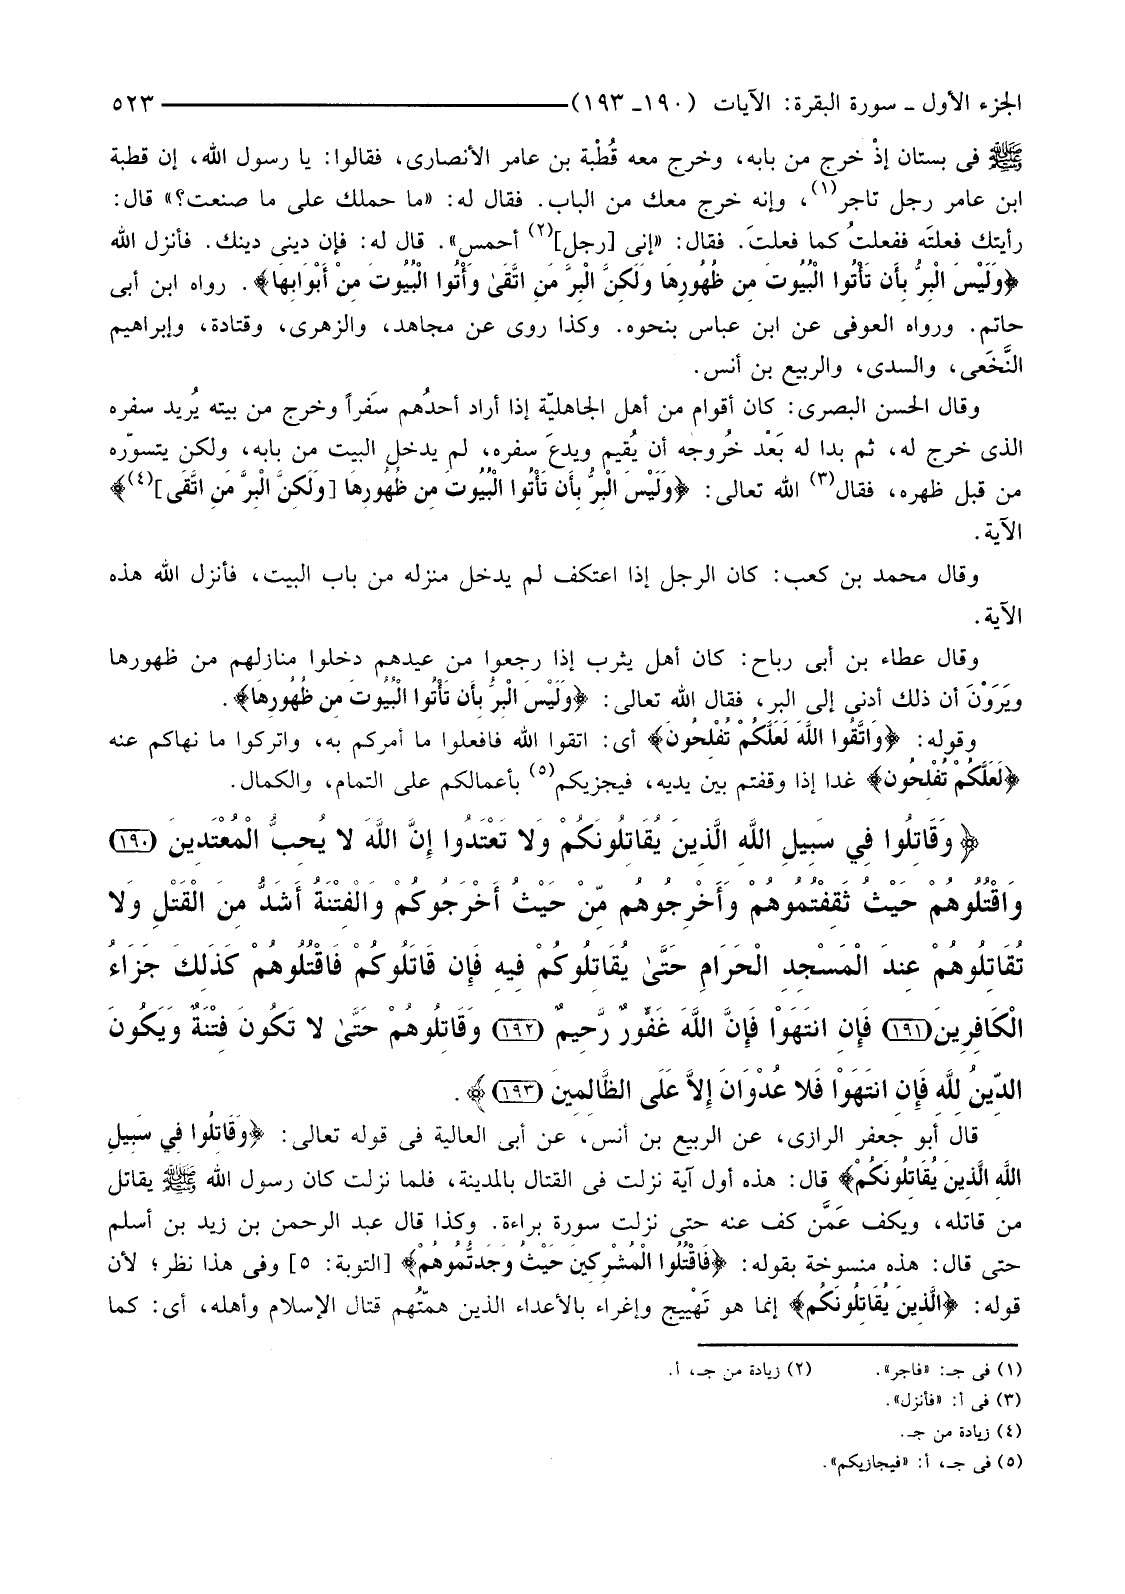 الجزء الأول ـ سورة البقرة: الآيات (١٩٠ـ ١٩٣) ٥٢٣
ﷺ فى بستان إذْ خرج من بابه، وخرج معه قُطْبة بن عامر الأنصارى، فقالوا: يا رسول الله، إن قطبة
ابن عامر رجل تاجر(١)، وإنه خرج معك من الباب. فقال له: «ما حملك على ما صنعت؟» قال:
رأيتك فعلتَه ففعلتُ كما فعلتَ. فقال: «إنى [رجل](٢) أحمس». قال له: فإن دينى دينك. فأنزل الله
﴿وَلَيْسَ الْبِرُّ بِأَن تَأْتُوا الْبُيُوتَ مِن ظُهُورِهَا وَلَكِنَّ الْبِرَّ مَنِ اتَّقَىٰ وَأْتُوا الْبُيُوتَ مِنْ أَبْوَابِهَا﴾. رواه ابن أبى
حاتم. ورواه العوفى عن ابن عباس بنحوه. وكذا روى عن مجاهد، والزهرى، وقتادة، وإبراهيم
النَّخَعى، والسدى، والربيع بن أنس.
وقال الحسن البصرى: كان أقوام من أهل الجاهليّة إذا أراد أحدُهم سَفَراً وخرج من بيته يُريد سفره
الذى خرج له، ثم بدا له بَعْد خُروجه أن يُقيم ويدعَ سفره، لم يدخل البيت من بابه، ولكن يتسوّره
من قبل ظهره، فقال(٣) الله تعالى: ﴿وَلَيْسَ الْبِرُّ بِأَن تَأْتُوا الْبُيُوتَ مِن ظُهُورِهَا [وَلَكِنَّ الْبِرَّ مَنِ اتَّقَى](٤)﴾
الآية.
وقال محمد بن كعب: كان الرجل إذا اعتكف لم يدخل منزله من باب البيت، فأنزل الله هذه
الآية.
وقال عطاء بن أبى رباح: كان أهل يثرب إذا رجعوا من عيدهم دخلوا منازلهم من ظهورها
ويَرَوْنَ أن ذلك أدنى إلى البر، فقال الله تعالى: ﴿وَلَيْسَ الْبِرُّ بِأَن تَأْتُوا الْبُيُوتَ مِن ظُهُورِهَا﴾.
وقوله: ﴿وَاتَّقُوا اللَّهَ لَعَلَّكُمْ تُفْلِحُونَ﴾ أى: اتقوا الله فافعلوا ما أمركم به، واتركوا ما نهاكم عنه
﴿لَعَلَّكُمْ تُفْلِحُون﴾ غدا إذا وقفتم بين يديه، فيجزيكم(٥) بأعمالكم على التمام، والكمال.
﴿ وَقَاتِلُوا فِي سَبِيلِ اللَّهِ الَّذِينَ يُقَاتِلُونَكُمْ وَلا تَعْتَدُوا إِنَّ اللَّهَ لا يُحِبُّ الْمُعْتَدِينَ (١٩٠)
وَاقْتُلُوهُمْ حَيْثُ ثَقِفْتُمُوهُمْ وَأَخْرِجُوهُم مِّنْ حَيْثُ أَخْرَجُوكُمْ وَالْفِتْنَةُ أَشَدُّ مِنَ الْقَتْلِ وَلا
تُقَاتِلُوهُمْ عِندَ الْمَسْجِدِ الْحَرَامِ حَتَّىٰ يُقَاتِلُوكُمْ فِيهِ فَإِن قَاتَلُوكُمْ فَاقْتُلُوهُمْ كَذَلِكَ جَزَاءُ
الْكَافِرِينَ (١٩١) فَإِنِ انتَهَوْا فَإِنَّ اللَّهَ غَفُورٌ رَّحِيمٌ (١٩٢) وَقَاتِلُوهُمْ حَتَّىٰ لا تَكُونَ فِتْنَةٌ وَيَكُونَ
الدِّينُ لِلَّهِ فَإِنِ انتَهَوْا فَلا عُدْوَانَ إِلاَّ عَلَى الظَّالِمِينَ (١٩٣)﴾.
قال أبو جعفر الرازى، عن الربيع بن أنس، عن أبى العالية فى قوله تعالى: ﴿وَقَاتِلُوا فِي سَبِيلِ
اللَّهِ الَّذِينَ يُقَاتِلُونَكُمْ﴾ قال: هذه أول آية نزلت فى القتال بالمدينة، فلما نزلت كان رسول الله ﷺ يقاتل
من قاتله، ويكف عَمَّن كف عنه حتى نزلت سورة براءة. وكذا قال عبد الرحمن بن زيد بن أسلم
حتى قال: هذه منسوخة بقوله: ﴿فَاقْتُلُوا الْمُشْرِكِينَ حَيْثُ وَجَدتُّمُوهُمْ﴾ [التوبة: ٥] وفى هذا نظر؛ لأن
قوله: ﴿الَّذِينَ يُقَاتِلُونَكُم﴾ إنما هو تَهْييج وإغراء بالأعداء الذين همّتُهم قتال الإسلام وأهله، أى: كما
(١) فى جـ: «فاجر». (٢) زيادة من جـ، أ.
(٣) فى أ: «فأنزل».
(٤) زيادة من جـ.
(٥) فى جـ، أ: «فيجازيكم».